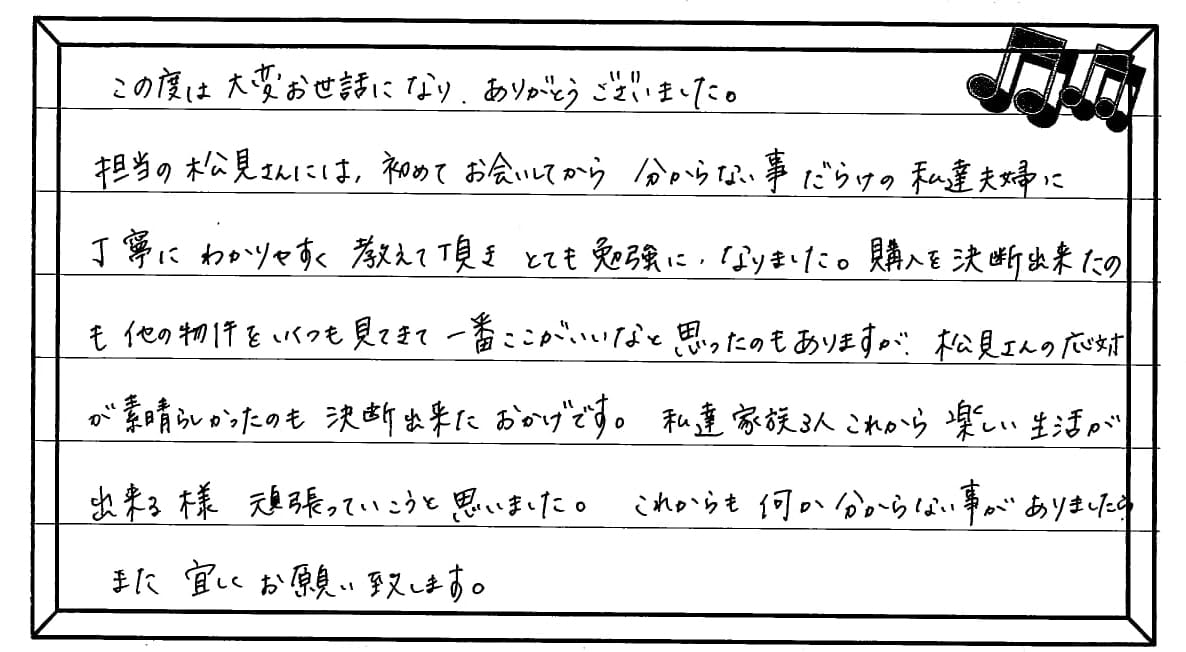 この度は大変お世話になり、ありがとうございました。
担当の松見さんには、初めてお会いしてから分からない事だらけの私達夫婦に
丁寧にわかりやすく教えて頂きとても勉強になりました。購入を決断出来たの
も他の物件をいくつも見てきて一番ここがいいなと思ったのもありますが、松見さんの応対
が素晴らしかったのも決断出来たおかげです。私達家族3人これから楽しい生活が
出来る様頑張っていこうと思いました。これからも何か分からない事がありましたら
また宜しくお願い致します。